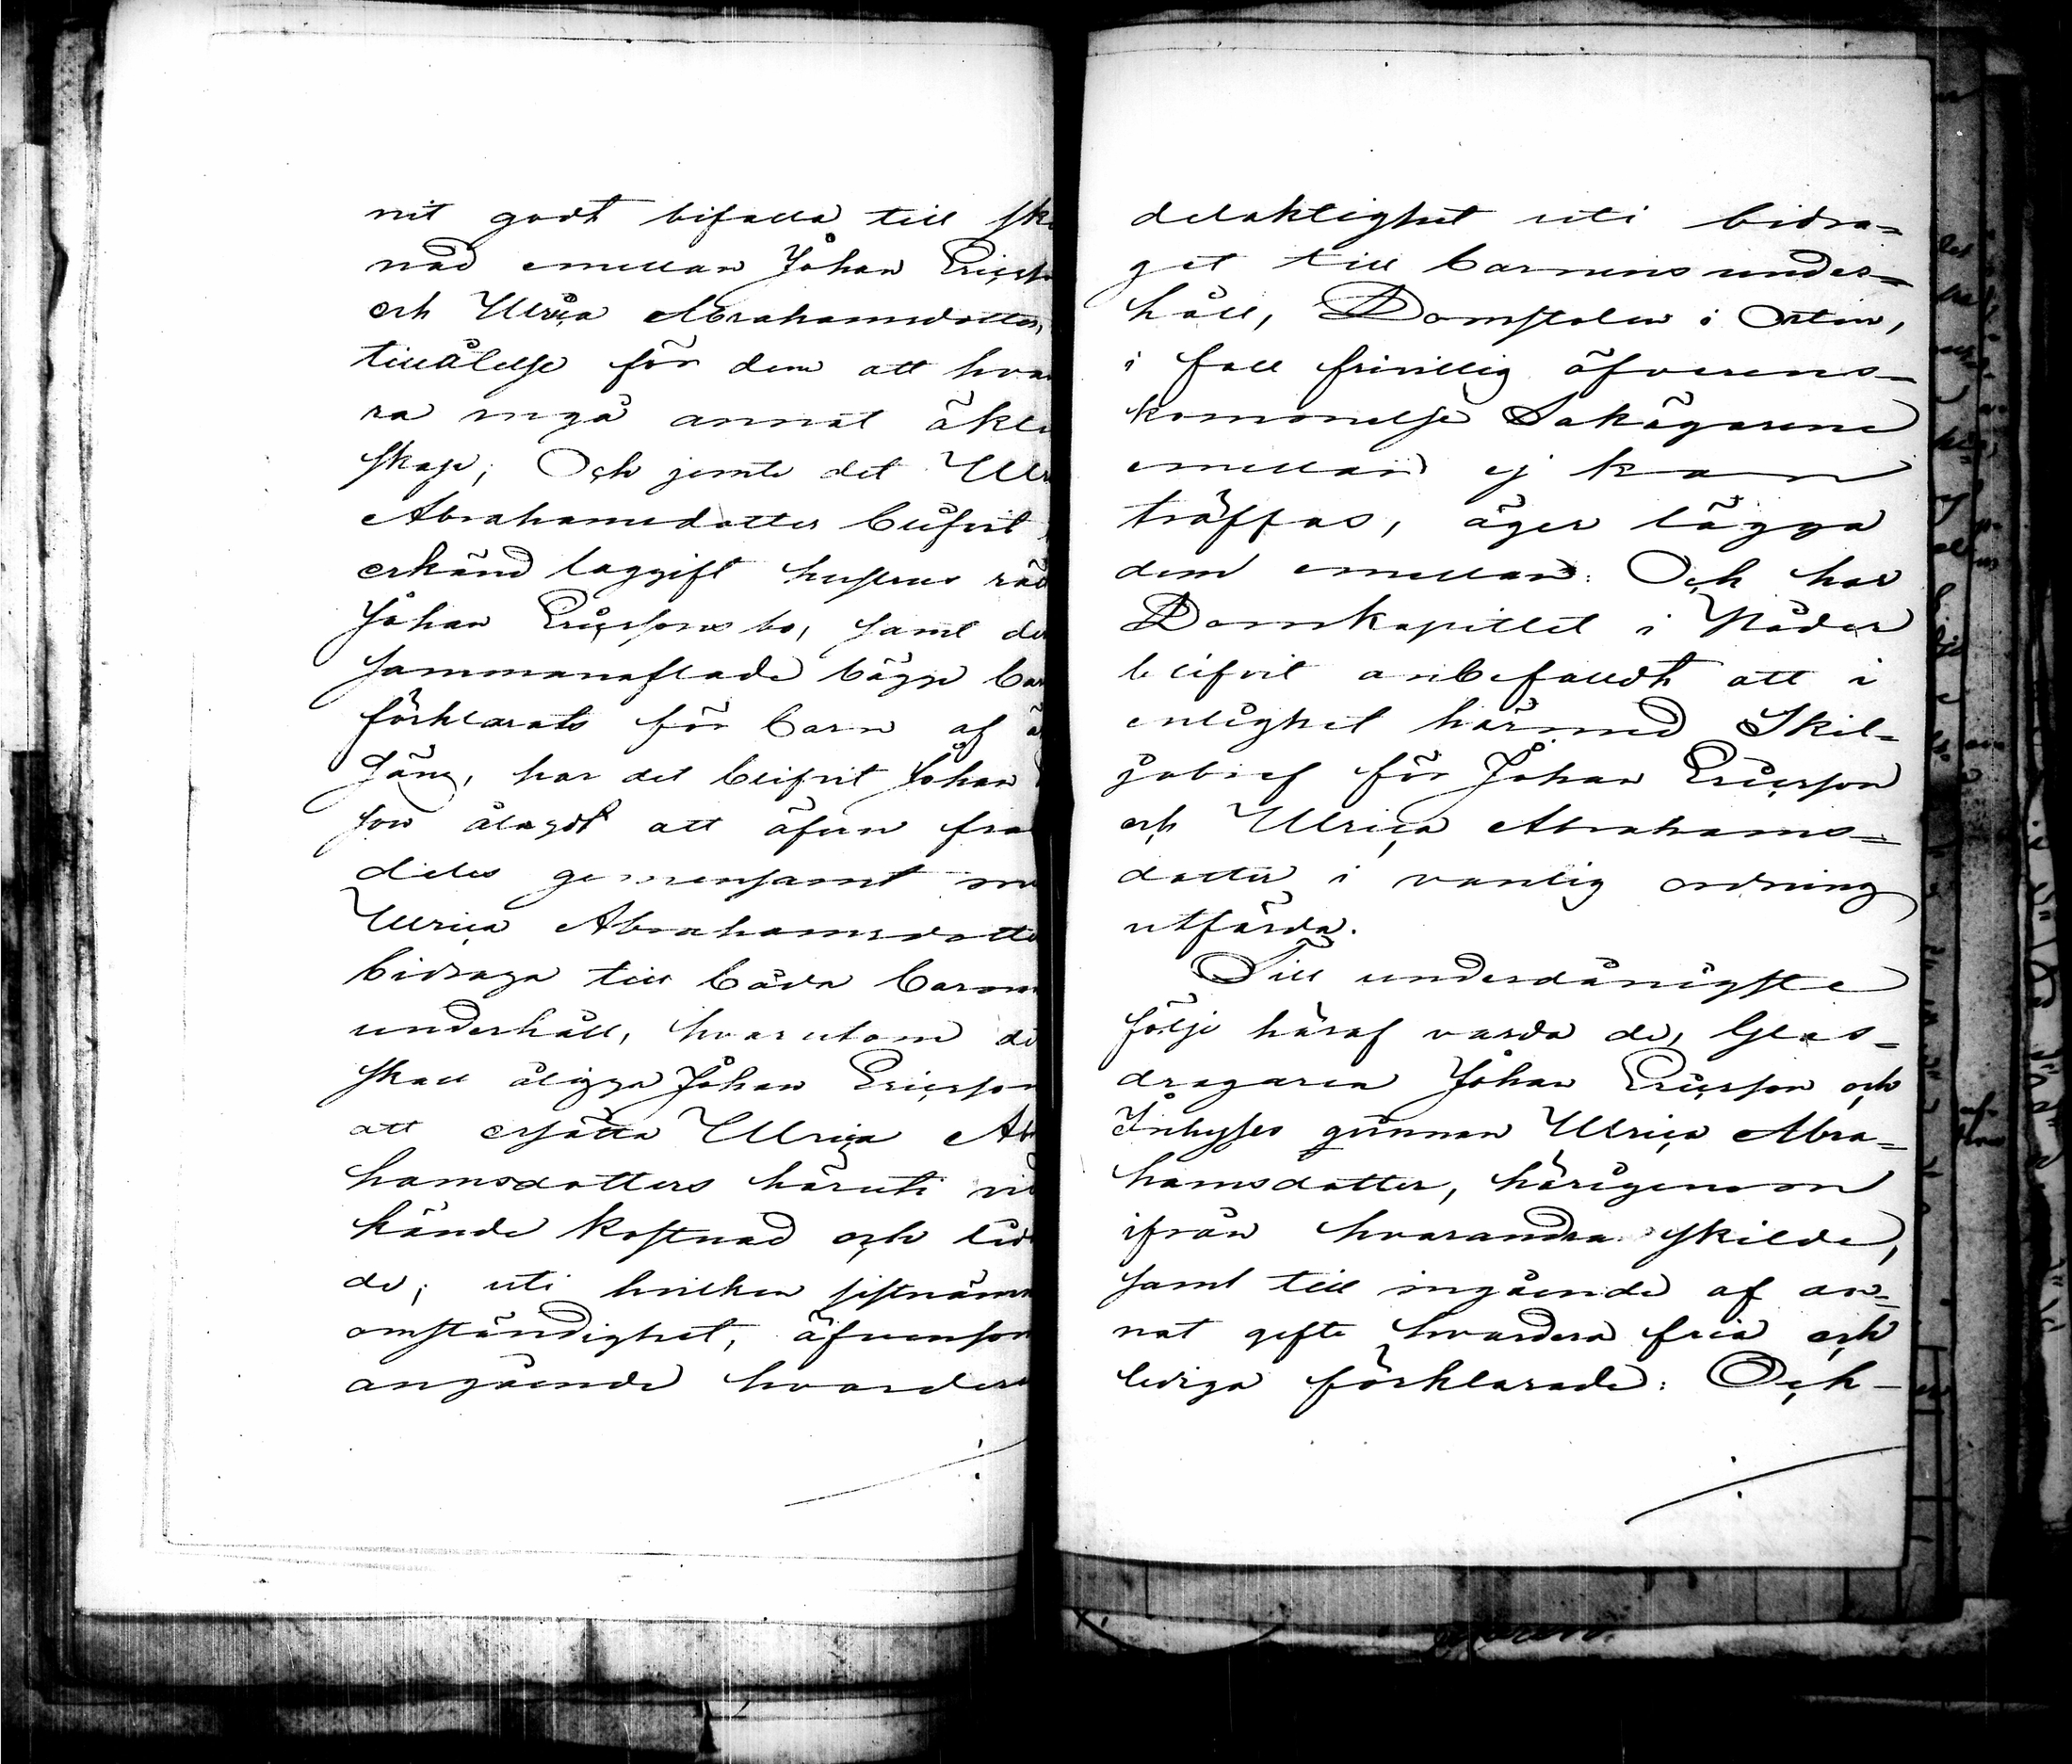 nit godt bifalla till ske
nad emellan Johan Ericss
och Ulrica Abrahamsdotter,
tillålelse för dem att hva
ra ingå annat äkte
skap; Och jemte det Ulr
Abrahamsdotter blifvit
erkänd laggift hustrus rät
Johan Ericssons bo, samt de
sammanaflade bägge bar
förklarats för barn af ä
säng, har det blifvit Johan
son ålagdt att äfven fra
deles gemensamt me
Ulrica Abrahamsdotte
bidraga till båda barne
underhåll, hvarutom de
skall åligga Johan Ericsson
att ersätta Ulrica Ab
hamsdotters häruti vid
kände kostnad och lid
de; uti hvilken sistnäm
omständighet, äfvenson
angående hvarder
delaktighet uti bidra=
get till barnens under=
håll, Domstolen i Orten,
i fall frivillig öfverens=
kommelse Sakägarene
emellan ej kan
träffas, äger lägga
dem emellan: Och har
Domkapitlet i Nåder
blifvit anbefalldt att i
enlighet härmed Skil=
jobref för Johan Ericsson
och Ulrica Abrahams=
dotter i vanlig ordning
utfärda.
Till underdånigste
följe häraf varda de, Glas=
dragaren Johan Ericsson och
Inhyses qvinnan Ulrica Abra=
hamsdotter, härigenom
ifrån hvarandra skilde,
samt till ingående af an=
nat gifte hvardera fria och
lediga förklarade: Och-